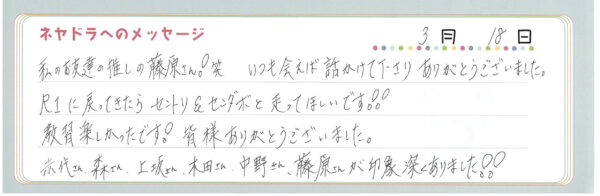 ネヤドラへのメッセージ
3月 18日
私の友達の推しの藤原さん!!笑 いつも会えば話かけて下さり ありがとうございました。
R1に戻ってきたら セントリ&センダボと走ってほしいです!!
教習楽しかったです!! 皆様ありがとうございました。
森さん、上坂さん、木田さん、中野さん、藤原さんが印象深くありました!!